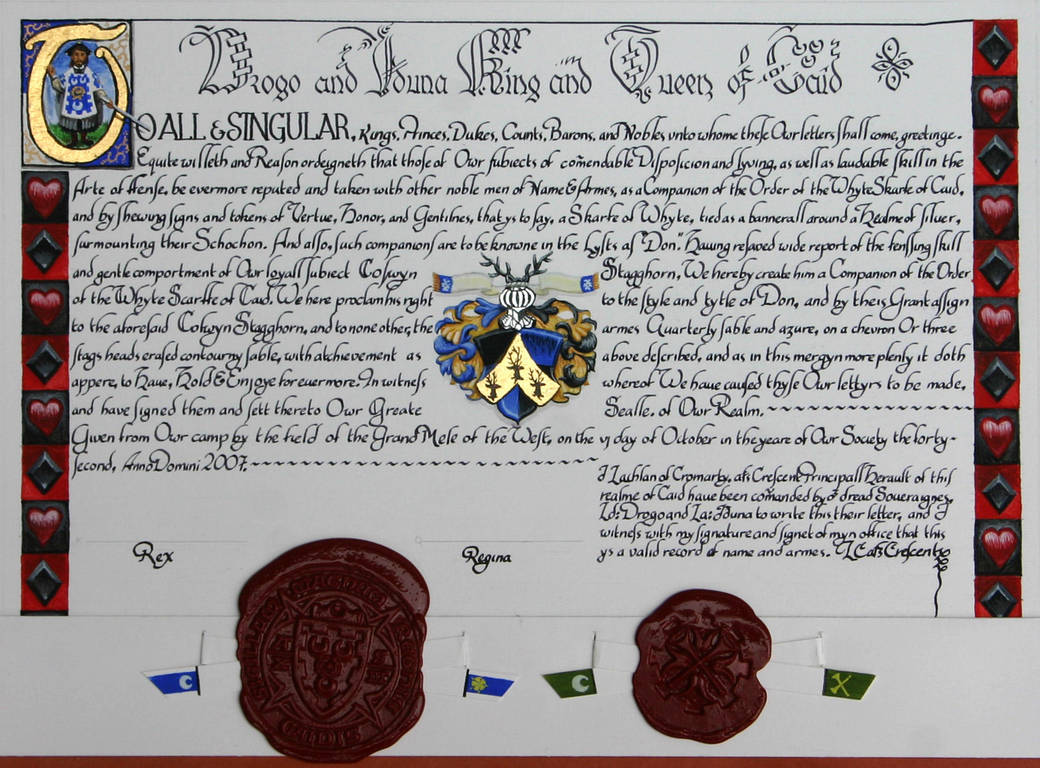 Drogo and Iduna King and Queen of Caid
TO ALL & SINGULAR, Kings, Princes, Dukes, Counts, Barons, and Nobles vnto whome these Our letters shall come, greetinge.
Equite willeth and Reason ordeyneth that those of Our subiects of comendable Disposicion and lyving, as well as laudable skill in the
Arte of ffense, be evermore reputed and taken with other noble men of Name & Armes, as a Companion of the Order of the Whyte Skarfe of Caid,
and by shewing signs and tokens of Vertue, Honor, and Gentilnes, that ys to say, a Skarfe of Whyte, tied as a bannerall around a Healme of silver,
surmounting their Schochon. And also, such companions are to be knowne in the Lysts as "Don." Hauing resaved wide report of the fensing skill
and gentle comportment of Our loyall subiect Colwyn Stagghorn, We hereby create him a Companion of the Order
of the Whyte Scarffe of Caid. We here proclam his right to the style and tytle of Don, and by theis Grant assign
to the aforesaid Colwyn Stagghorn, and to none other, the armes Quarterly sable and azure, on a chevron Or three
stags heads erased contourny sable, with atchievement as above described, and as in this mergyn more plenly it doth
appere, to Haue, Hold & Enjoye for euermore. In witness whereof We haue caused thyse Our lettyrs to be made,
and have signed them and sett thereto Owr Greate Sealle. of Our Realm.
Given from Owr camp by the field of the Grand Mele of the West, on the vj day of October in the yeare of Owr Society the forty-
second, Anno Domini 2007.
I Lachlan of Cromarty, als Crescent Principall Herault of this
realme of Caid haue been comanded by dread Soueraignes,
Ld: Drogo and La: Iduna to write this their letter, and I
witness with my signature and signet of myn office that this
ys a valid record of name and armes. als Crescent
Rex
Regina